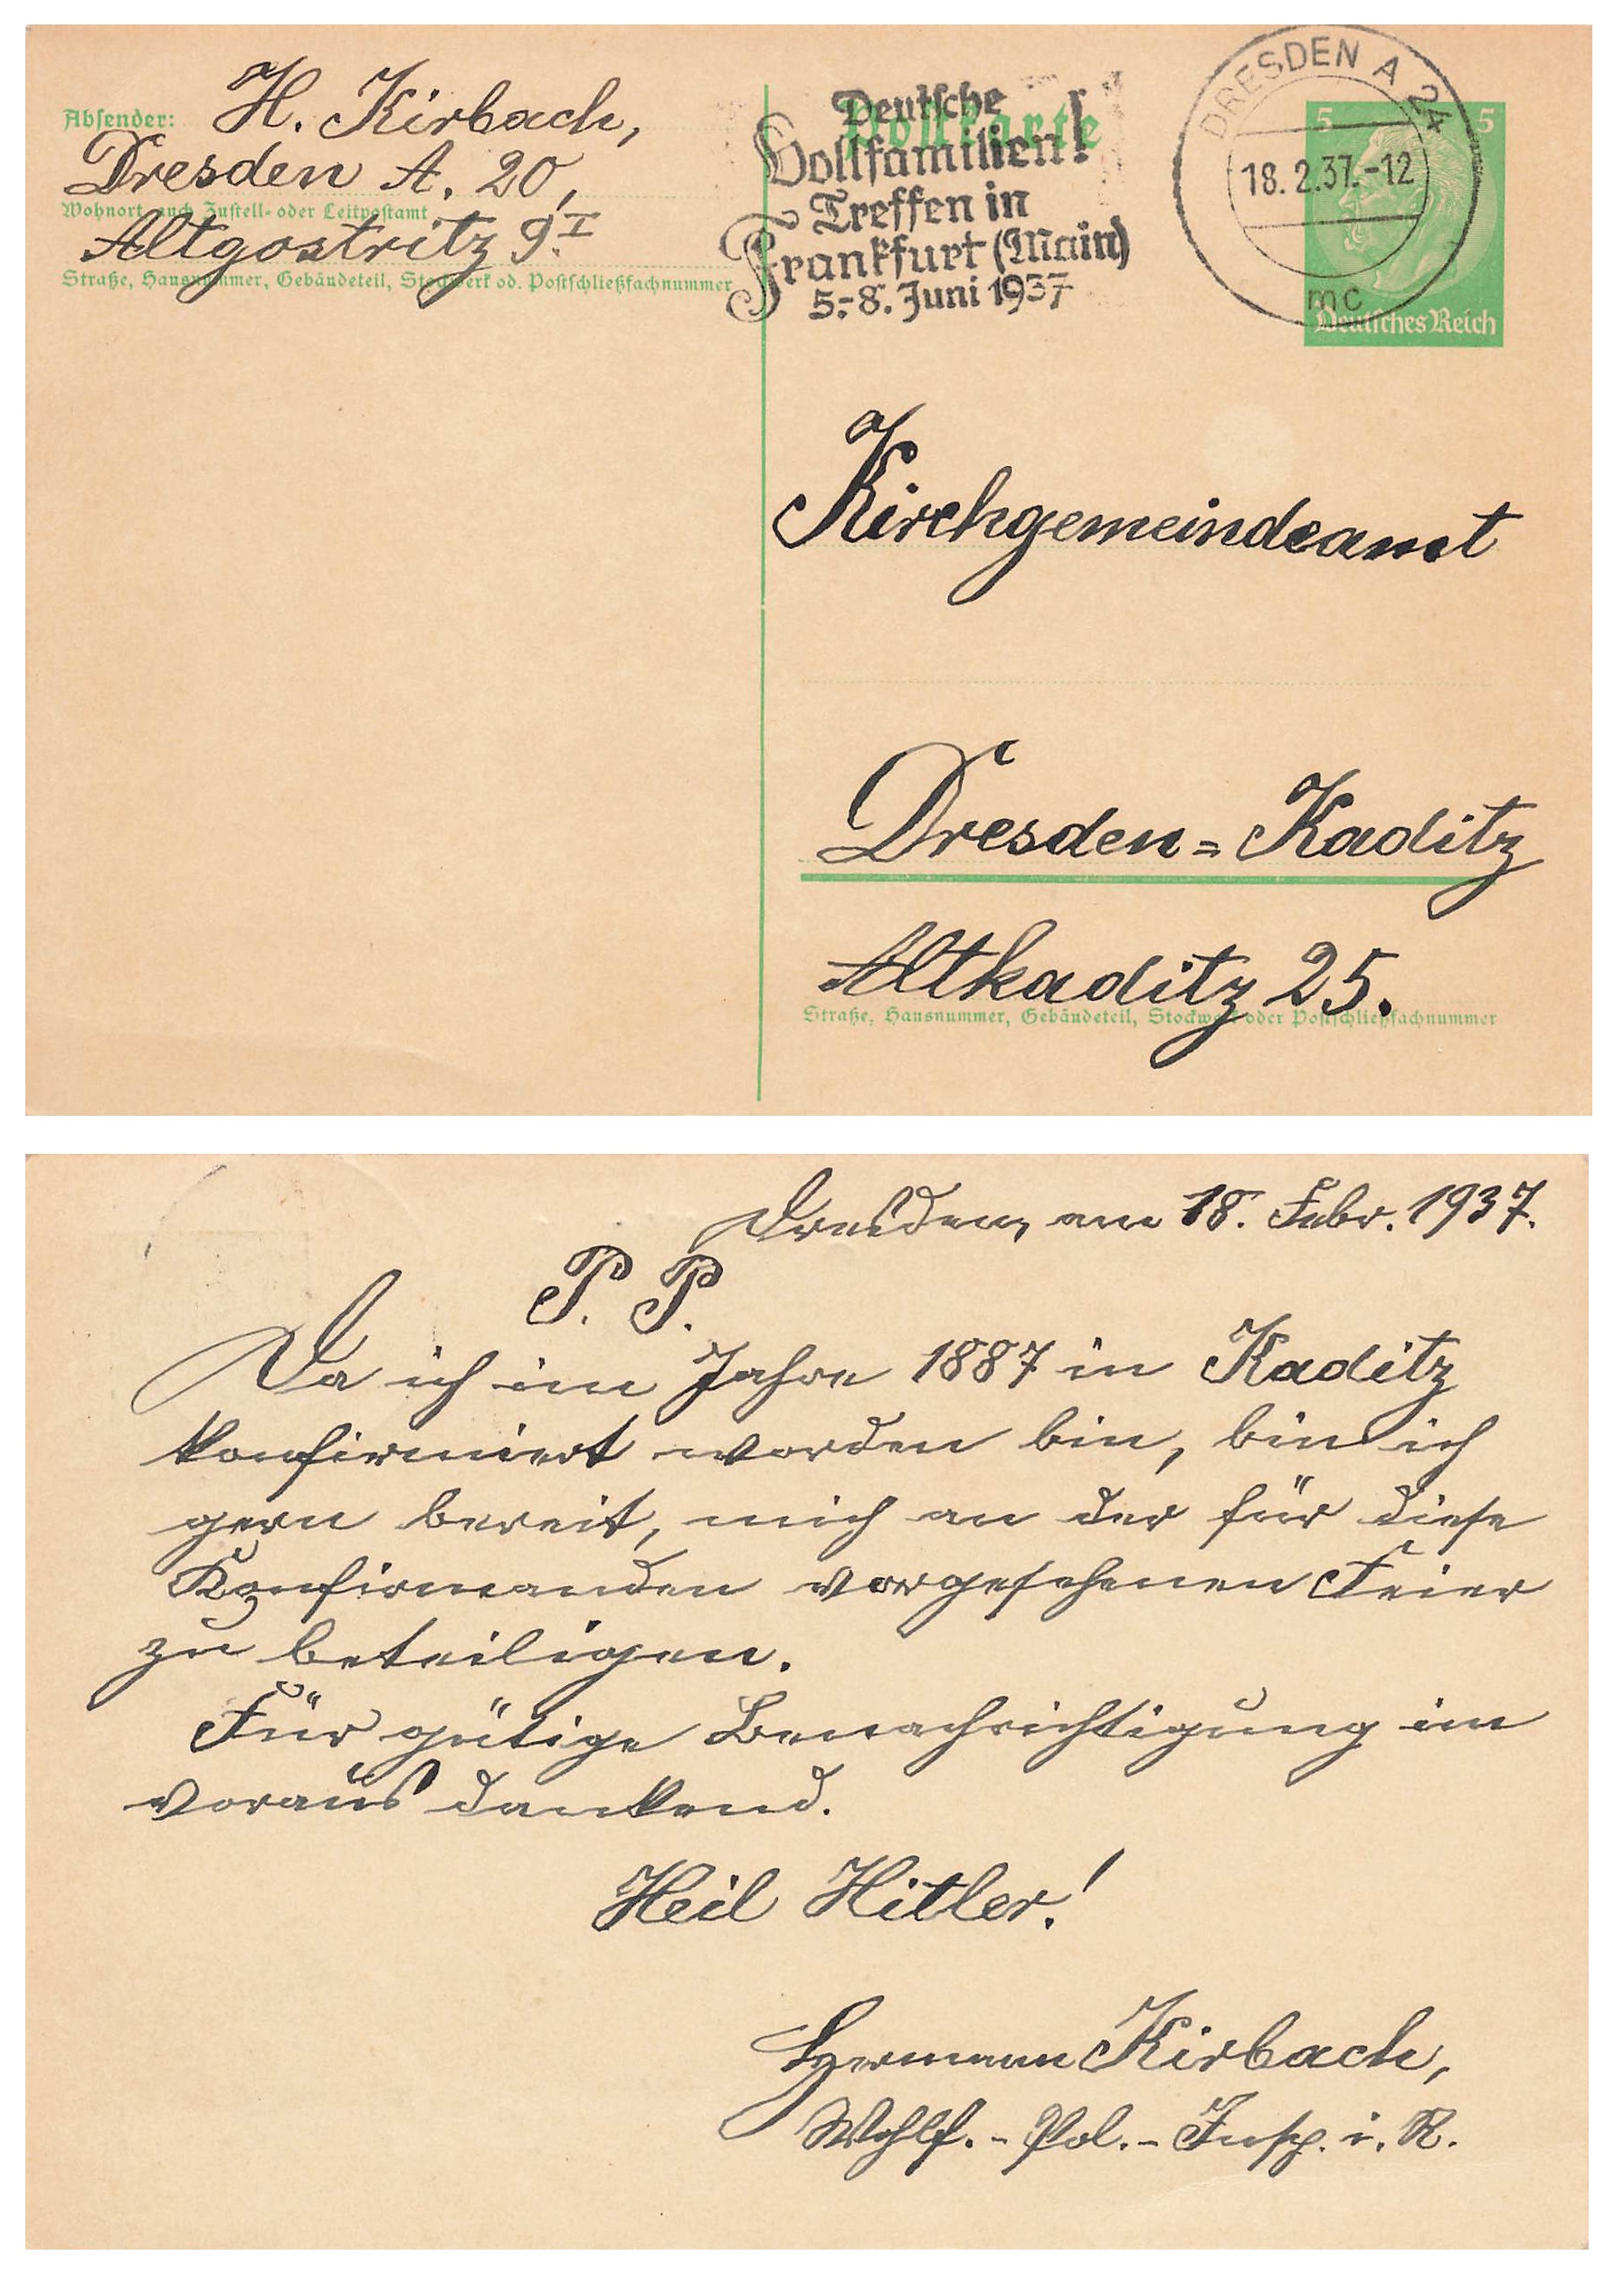 Absender: H. Kirbach,
Dresden A. 20,
Wohnort, auch Zustell- oder Leitpostamt
Altgostritz 9 I.
Straße, Hausnummer, Gebäudeteil, Stockwerk od. Postschließfachnummer
Postkarte
Deutsche
Vollfamilien!
Treffen in
Frankfurt (Main)
5.-8. Juni 1937
DRESDEN A 24
18.2.37.-12
mc
5 5
Deutsches Reich
Kirchgemeindeamt
Dresden=Kaditz
Altkaditz 25.
Straße, Hausnummer, Gebäudeteil, Stockwerk oder Postschließfachnummer
Dresden, am 18. Febr. 1937.
P. P.
Da ich im Jahre 1887 in Kaditz
konfirmiert worden bin, bin ich
gern bereit, mich an der für diese
Konfirmanden vorgesehenen Feier
zu beteiligen.
Für gütige Benachrichtigung im
voraus dankend.
Heil Hitler!
Hermann Kirbach,
Wohlf.-Pol.-Insp. i. R.